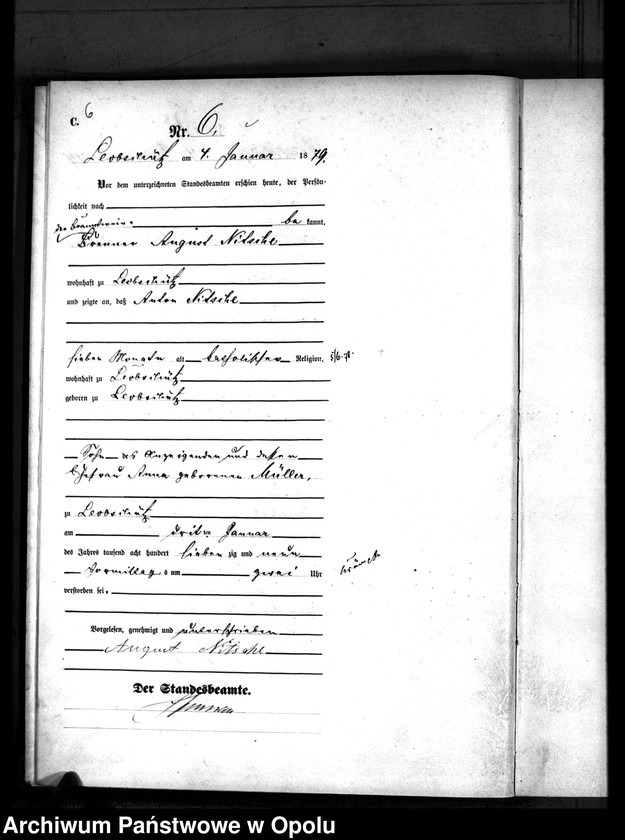 C. 6
Nr. 6.
Leobschütz am 4. Januar 1879.
Vor dem unterzeichneten Standesbeamten erschien heute, der Persön-
lichkeit nach
be kannt,
Brenner August Nitsche
wohnhaft zu Leobschütz
und zeigte an, daß Anton Nitsche
sieben Monate alt katholischer Religion,
wohnhaft zu Leobschütz
geboren zu Leobschütz
Sohn des Anzeigenden und dessen
Ehefrau Anna geborenen Müller,
zu Leobschütz
am dritten Januar
des Jahres tausend acht hundert siebenzig und neun
Vormittags um zwei Uhr
verstorben sei.
Vorgelesen, genehmigt und unterschrieben
August Nitsche
Der Standesbeamte.
Archiwum Państwowe w Opolu